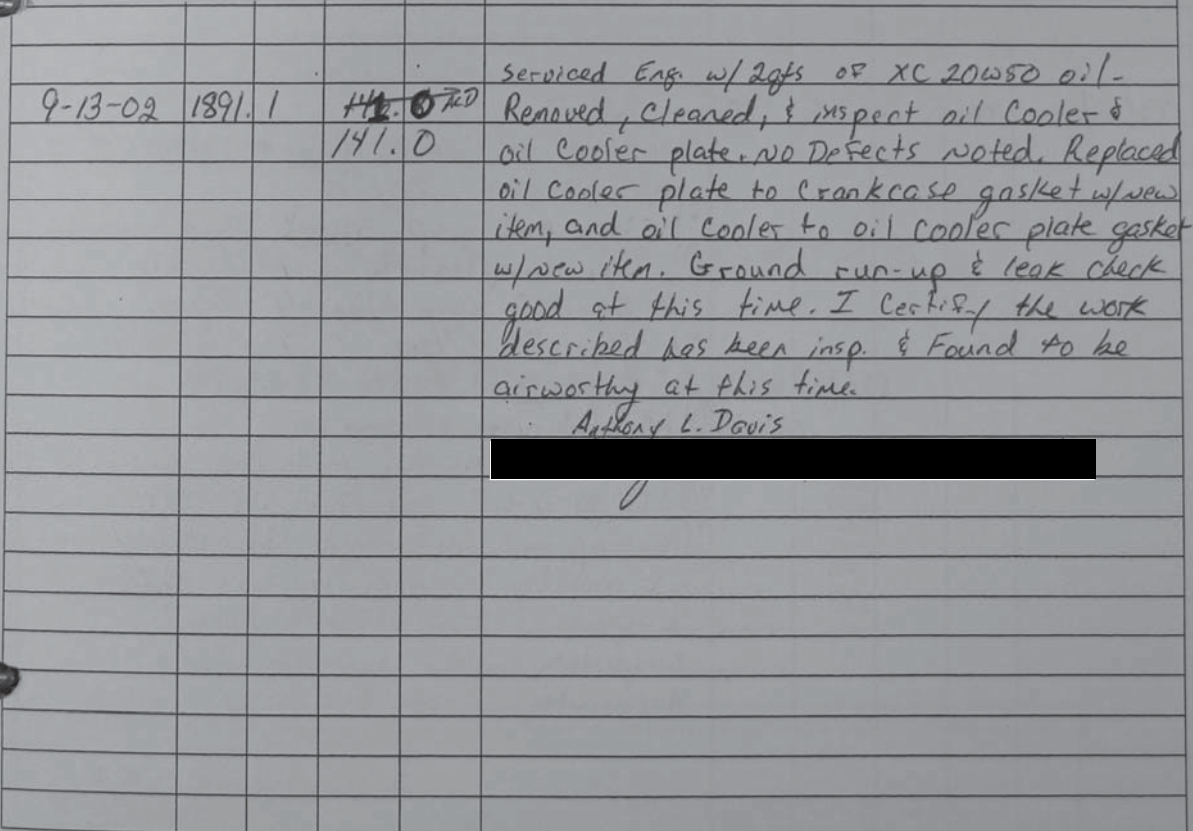 Serviced Eng. w/ 2qts of XC 20W50 oil-
9-13-02 1891.1 141.0 ALD Removed, Cleaned, & inspect oil Cooler &
141.0 oil Cooler plate. No Defects Noted. Replaced
oil Cooler plate to Crankcase gasket w/new
item, and oil Cooler to oil cooler plate gasket
w/new item. Ground run-up & leak check
good at this time. I Certify the work
described has been insp. & Found to be
airworthy at this time.
Anthony L. Davis